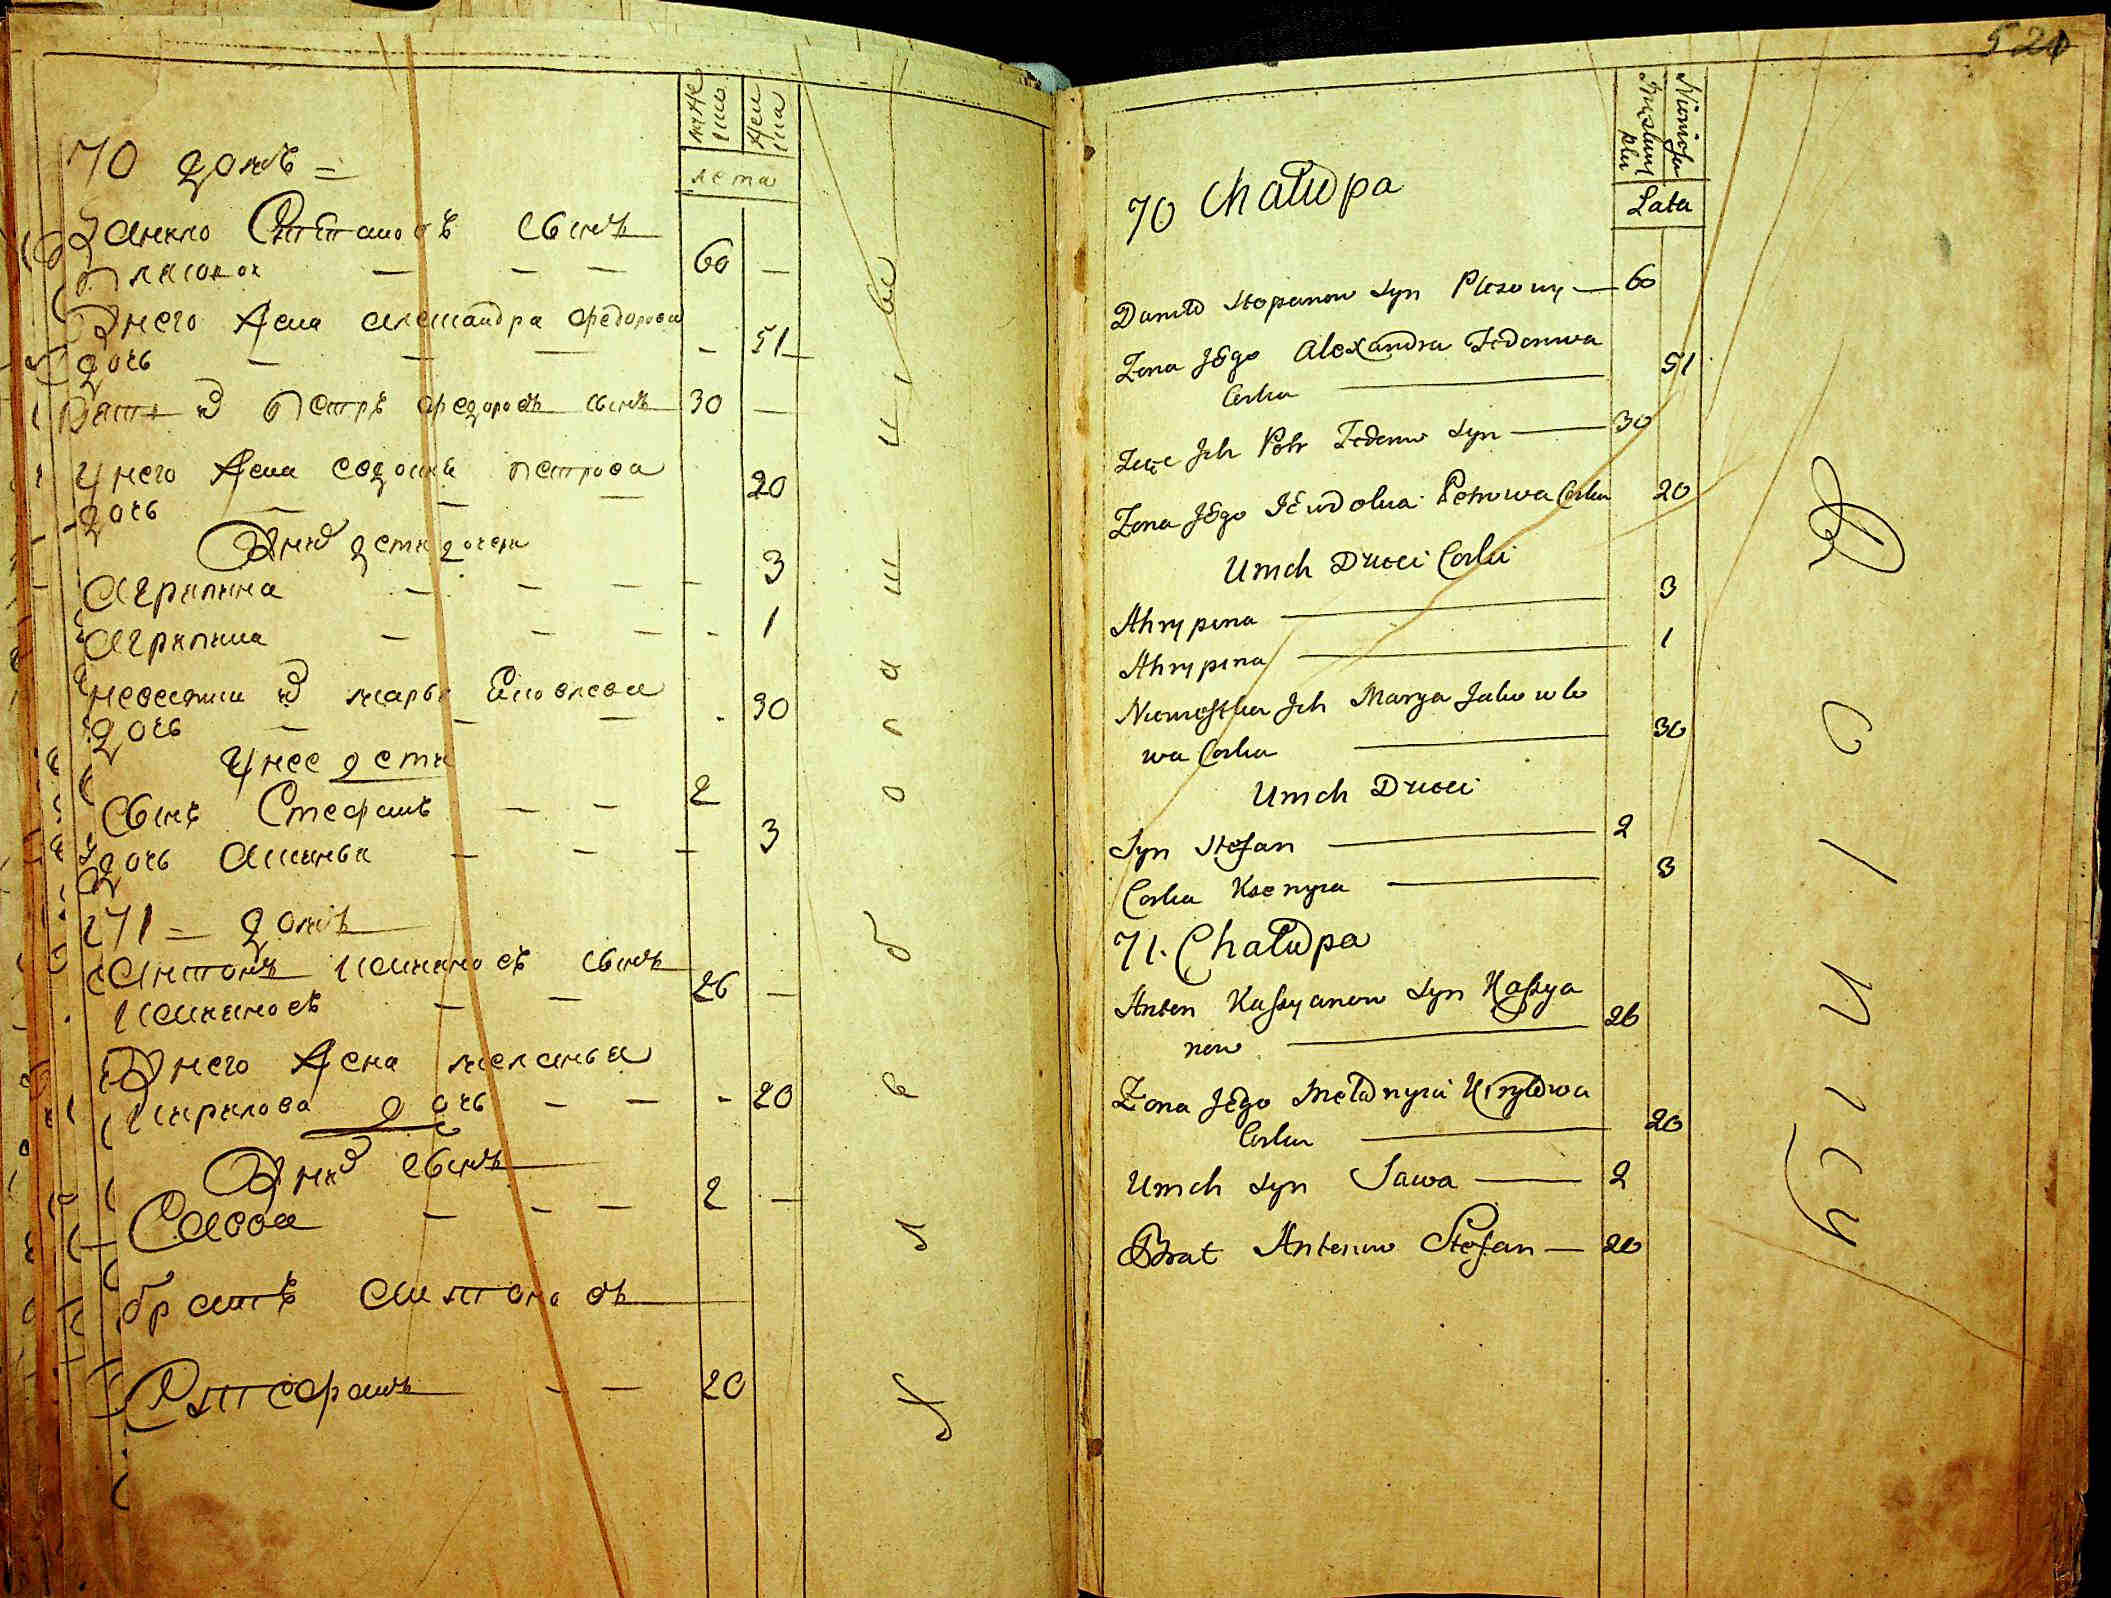 муже
ска
жен
ска
лета
70 домъ =
Данило Степановъ сынъ
Плисовой — — — 60 —
У него жена Александра Федорова
дочь — — — - 51
Зять их Петръ Федоровъ сынъ 30 —
У него жена Евдокия Петрова
дочь — — — 20
У них дети дочери
Агрипина — — — — 3
Агрипина — — — - 1
невестка их Марья Яковлева
дочь — — — - 30
У нее дети
Сынъ Стефанъ — — 2
дочь Аксинья — — — 3
71 = домъ
Антонъ Касияновъ сынъ
Касияновъ — — 26 —
У него жена Меланья
Кирилова дочь — — - 20
У них сынъ
Савва — — — 2 —
братъ Антоновъ
Стефанъ — — 20
521
Męskiey
Płci
Niewieściey
Lata
70 Chałupa
Daniło Stepanow Syn Plesowy — 60
Żona Jego Alexandra Fedorowa
Corka — 51
Zięć Ich Petr Fedorow Syn — 30
Żona Jego Jewdokia Petrowa Corka 20
U nich Dzieci Corki
Ahrypina — 3
Ahrypina — 1
Niewiestka Ich Marya Jakowle
wa Corka — 30
U nich Dzieci
Syn Stefan — 2
Corka Ksenyia — 3
71. Chałupa
Anton Kassyanow Syn Kassya
now — 26
Żona Jego Mełanyia Kryłowa
Corka — 20
U nich Syn Sawa — 2
Brat Antonow Stefan — 20
Rolnicy